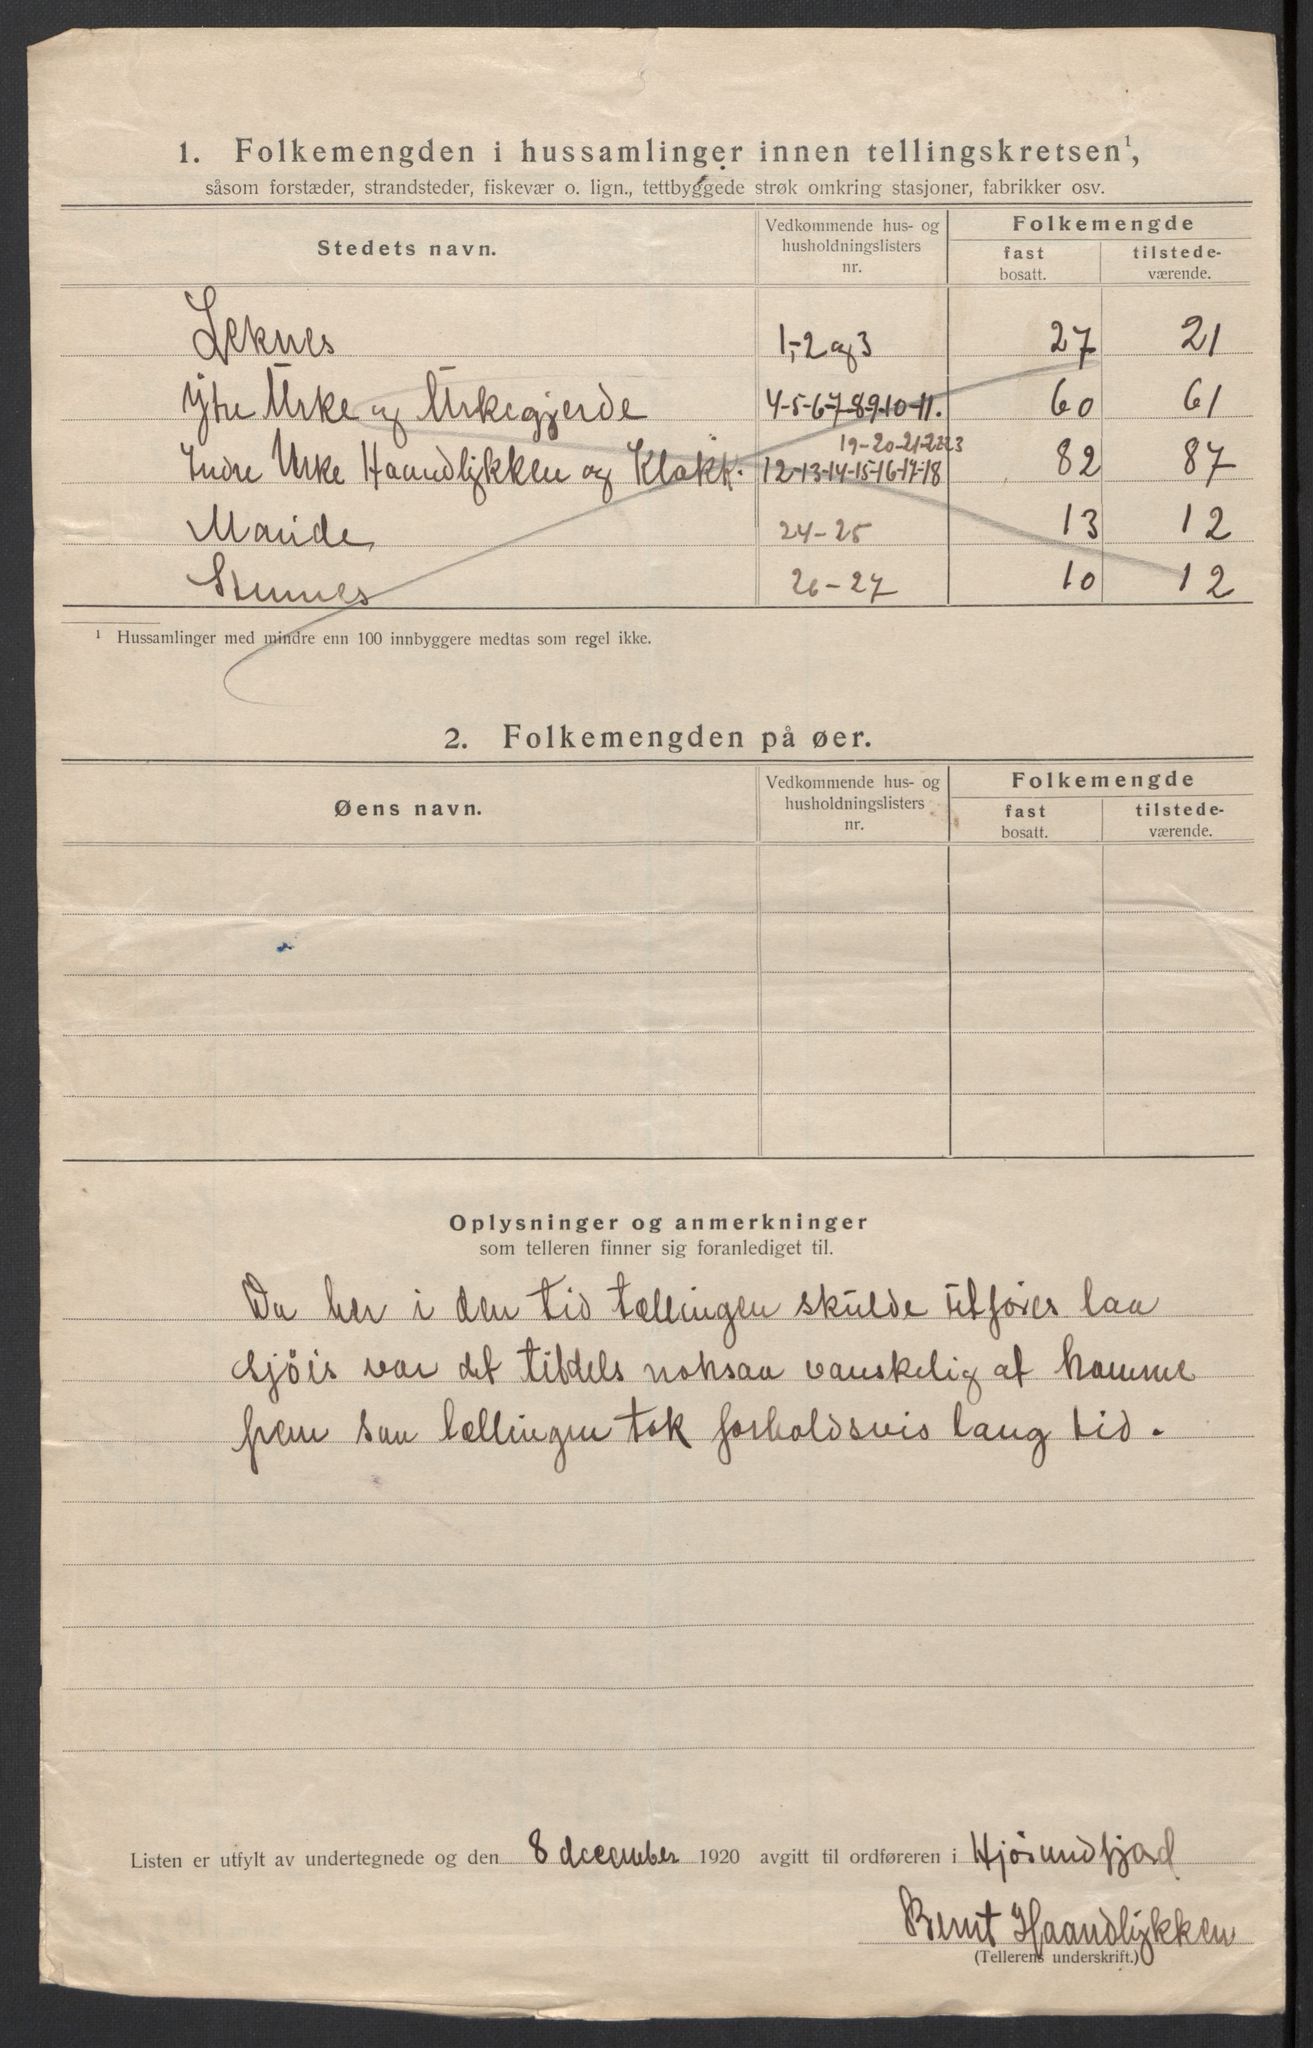 1. Folkemengden i hussamlinger innen tellingskretsen¹,
såsom forstæder, strandsteder, fiskevær o. lign., tettbyggede strøk omkring stasjoner, fabrikker osv.
Stedets navn. Vedkommende hus- og husholdningslisters nr. Folkemengde
fast bosatt. tilstede-værende.
Leknes 1,-2 og 3 27 21
Ytre Urke og Urkegjerde 4-5-6-7-8-9-10-11. 60 61
19-20-21-22-23
Indre Urke Haandlykken og Klokk. 12-13-14-15-16-17-18 82 87
24-25 13 12
26-27 10 12
¹ Hussamlinger med mindre enn 100 innbyggere medtas som regel ikke.
2. Folkemengden på øer.
Øens navn. Vedkommende hus- og husholdningslisters nr. Folkemengde
fast bosatt. tilstede-værende.
Oplysninger og anmerkninger
som telleren finner sig foranlediget til.
Da her i den tid tællingen skulde utføres laa
sjöis var det tildels noksaa vanskelig at komme
frem saa tællingen tok forholdsvis lang tid.
Listen er utfylt av undertegnede og den 8 december 1920 avgitt til ordføreren i Hjörundfjord
Bernt Haandlykken
(Tellerens underskrift.)